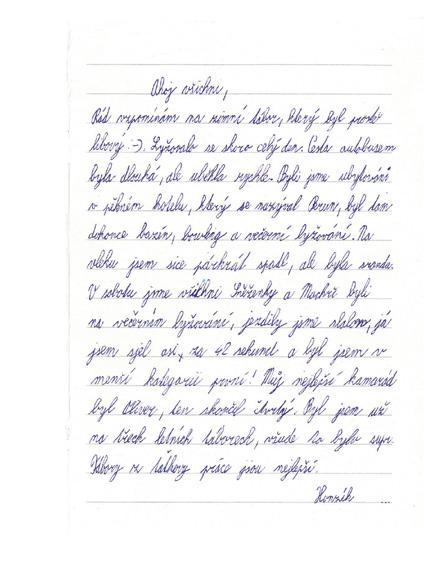 Ahoj všichni,
Rád vzpomínám na zimní tábor, který byl prostě
libový :-). Lyžovalo se skoro celý den. Cesta autobusem
byla dlouhá, ale utekla rychle. Byli jsme ubytováni
v pěkném hotelu, který se nazýval Perun, byl tam
dokonce bazén, bowling a večerní lyžování. Na
vleku jsem sice párkrát spadl, ale byla sranda.
V sobotu jsme všichni Sněženky a Machři byli
na večerním lyžování, jezdily jsme slalom, já
jsem sjel za 42 sekund a byl jsem v
menší kategorii první! Můj nejlepší kamarád
byl Oliver, ten skončil čtvrtý. Byl jsem už
na třech letních táborech, všude to bylo supr.
Tábory z táty práce jsou nejlepší.
Honzík
...